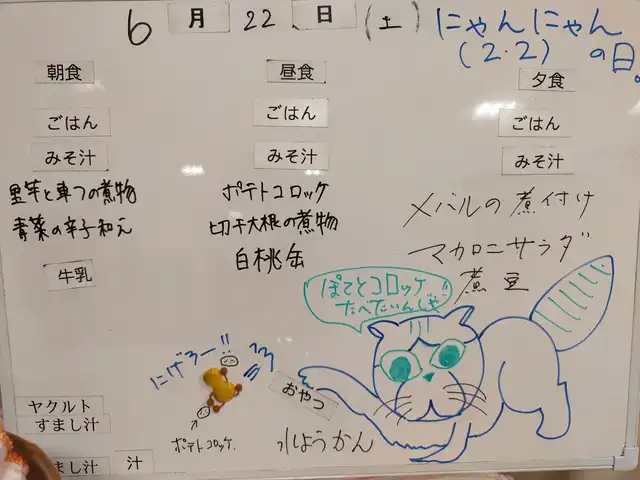 6 月 22 日 (土)
にゃんにゃん
(2・2) の日。
朝食
ごはん
みそ汁
里芋と車フの煮物
青菜の辛子和え
牛乳
昼食
ごはん
みそ汁
ポテトコロッケ
切干大根の煮物
白桃缶
夕食
ごはん
みそ汁
メバルの煮付け
マカロニサラダ
煮豆
ぽてとコロッケ
たべたいんじゃ
にげろー!!
ポテトコロッケ
おやつ
水ようかん
ヤクルト
すまし汁
すまし汁
汁